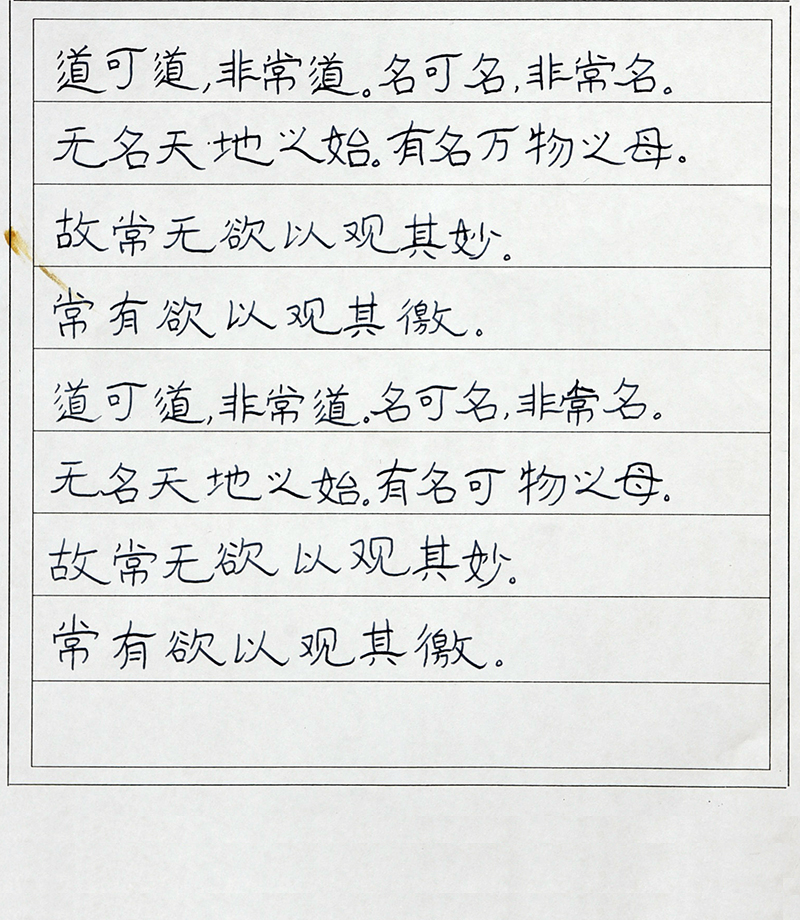 道可道,非常道。名可名,非常名。
无名天地之始。有名万物之母。
故常无欲以观其妙。
常有欲以观其徼。
道可道,非常道。名可名,非常名。
无名天地之始。有名可物之母。
故常无欲以观其妙。
常有欲以观其徼。